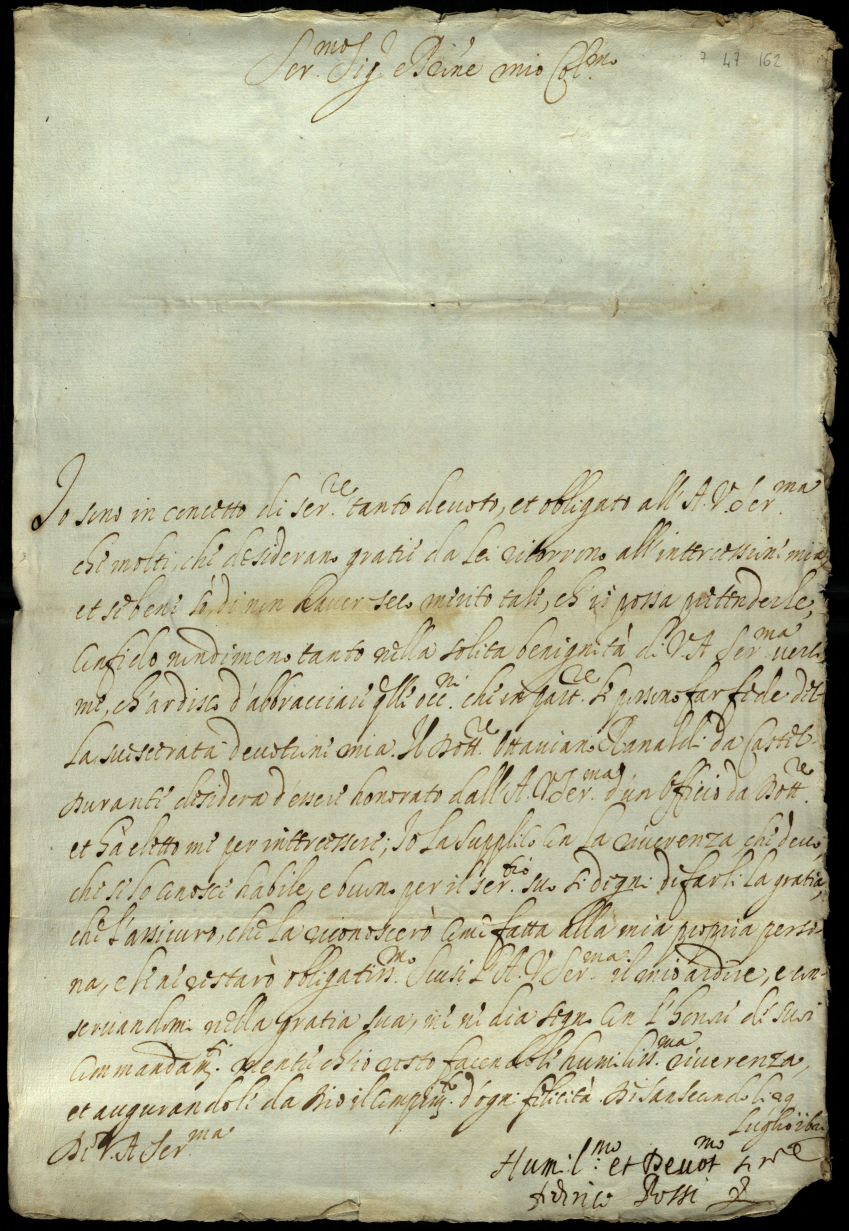 Ser.mo Sig.r e Pr̃ne mio Col.mo
7 47 162
Io sono in concetto di ser.re tanto devoto, et obligato all'A. V. Ser.ma
che molti, che desiderano gratie da Lei ricorrono all'intercessione mia,
et se bene sò di non haver seco merito tale, ch'io possa pretenderle,
Confido nondimeno tanto nella solita benignità di V. A. Ser.ma verso
me, ch'ardisco d'abbracciare q̃lle occ.ni che in parte li possono far fede del-
la sviscerata devotione mia. Il Dott.re Ottaviano Ranaldi da Castel-
Durante desidera d'essere honorato dall'A. V. Ser.ma d'un Officio da Dott.re
et hà eletto me per intercessore; Io La supplico con la riverenza che devo,
che se lo conosce habile, e buono per il ser.tio suo si degni di farli la gratia,
che l'assicuro, che La riconoscerò come fatta alla mia propria perso-
na, e li ne restarò obligatiss.mo Scusi l'A. V. Ser.ma il mio ardire, e con-
servandomi nella gratia sua, me ne dia segno con l'honore de suoi
Commandam.ti mentre ch'io resto facendoli humiliss.ma riverenza,
et augurandoli da Dio il compim.to d'ogni felicità. Di Sansecondo li 29
Luglio
Di V. A. Ser.ma
Humil.mo et Devot.mo s.re
Federico Rossi